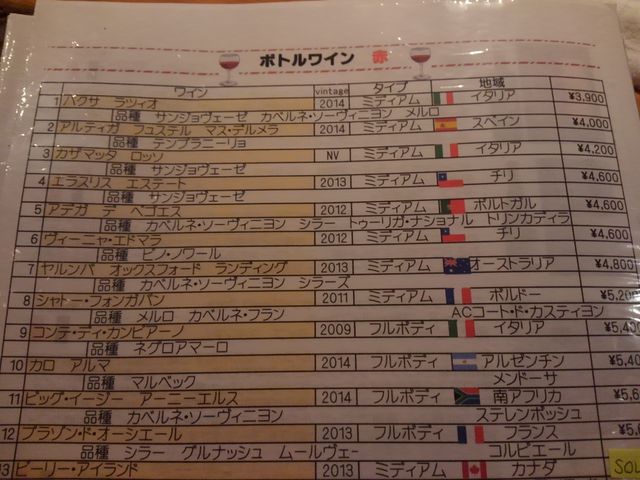 ボトルワイン 赤
ワイン vintage タイプ 地域
1 パクサ ラツィオ 2014 ミディアム イタリア ¥3,900
品種 サンジョヴェーゼ カベルネ・ソーヴィニヨン メルロ
2 アルティガ フュステル マス・デルメラ 2014 ミディアム スペイン ¥4,000
品種 テンプラニーリョ
3 カザマッタ ロッソ NV ミディアム イタリア ¥4,200
品種 サンジョヴェーゼ
4 エラスリス エステート 2013 ミディアム チリ ¥4,600
品種 サンジョヴェーゼ
5 アデガ デ ペゴエス 2012 ミディアム ポルトガル ¥4,600
品種 カベルネ・ソーヴィニヨン シラー トゥーリガ・ナショナル トリンカディラ
6 ヴィーニャ・エドマラ 2012 ミディアム チリ ¥4,600
品種 ピノ・ノワール
7 ヤルンバ オックスフォード ランディング 2013 ミディアム オーストラリア ¥4,800
品種 カベルネ・ソーヴィニヨン シラーズ
8 シャトー・フォンガバン 2011 ミディアム ボルドー ¥5,200
品種 メルロ カベルネ・フラン ACコート・ド・カスティヨン
9 コンテ・ディ・カンピアーノ 2009 フルボディ イタリア ¥5,40
品種 ネグロアマーロ
10 カロ アルマ 2014 フルボディ アルゼンチン ¥5,40
品種 マルベック メンドーサ
11 ビッグ・イージー アーニーエルス 2014 フルボディ 南アフリカ ¥5,6
品種 カベルネ・ソーヴィニヨン ステレンボッシュ
12 ブラゾン・ド・オーシエール 2013 フルボディ フランス ¥5,6
品種 シラー グルナッシュ ムールヴェー コルビエール
13 ピーリー・アイランド 2013 ミディアム カナダ SOL